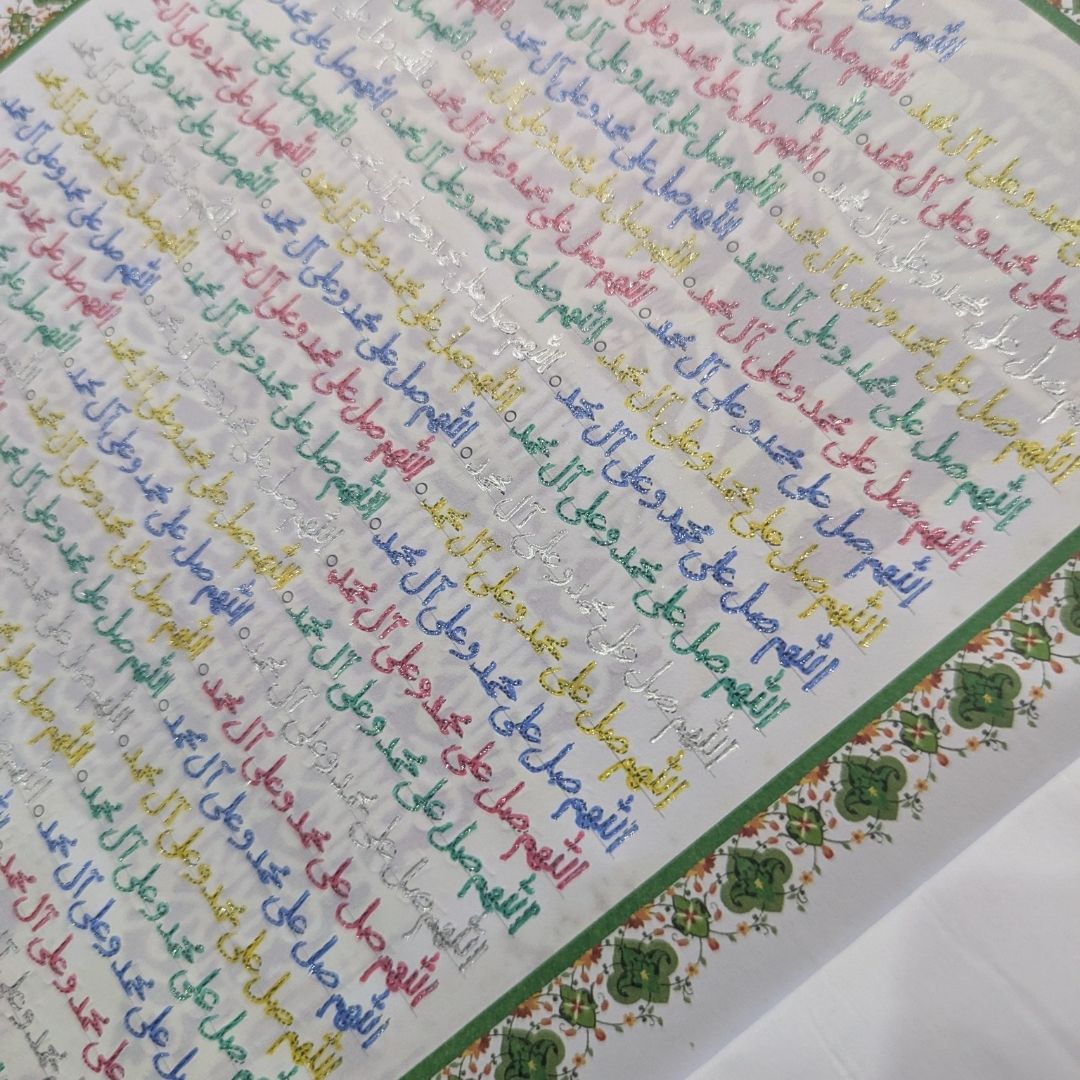 وعلى آل محمد ○ اللهم صل
محمد وعلى آل محمد ○ اللهم صل على
على محمد وعلى آل محمد ○ اللهم صل على محمد
صل على محمد وعلى آل محمد ○ اللهم صل على محمد وعلى
اللهم صل على محمد وعلى آل محمد ○ اللهم صل على محمد وعلى آل محمد
اللهم صل على محمد وعلى آل محمد ○ اللهم صل على محمد وعلى آل محمد ○
اللهم صل على محمد وعلى آل محمد ○ اللهم صل على محمد وعلى آل محمد ○ اللهم صل
اللهم صل على محمد وعلى آل محمد ○ اللهم صل على محمد وعلى آل محمد ○ اللهم صل على
اللهم صل على محمد وعلى آل محمد ○ اللهم صل على محمد وعلى آل محمد ○ اللهم صل على محمد
اللهم صل على محمد وعلى آل محمد ○ اللهم صل على محمد وعلى آل محمد ○ اللهم صل على محمد وعلى
اللهم صل على محمد وعلى آل محمد ○ اللهم صل على محمد وعلى آل محمد ○ اللهم صل على محمد وعلى آل محمد
اللهم صل على محمد وعلى آل محمد ○ اللهم صل على محمد وعلى آل محمد ○ اللهم صل على محمد وعلى آل محمد
اللهم صل على محمد وعلى آل محمد ○ اللهم صل على محمد وعلى آل محمد ○ اللهم صل على محمد وعلى آل محمد
اللهم صل على محمد وعلى آل محمد ○ اللهم صل على محمد وعلى آل محمد ○ اللهم صل على محمد وعلى آل محمد
اللهم صل على محمد وعلى آل محمد ○ اللهم صل على محمد وعلى آل محمد ○ اللهم صل على محمد وعلى آل محمد
اللهم صل على محمد وعلى آل محمد ○ اللهم صل على محمد وعلى آل محمد ○ اللهم صل على محمد وعلى
اللهم صل على محمد وعلى آل محمد ○ اللهم صل على محمد وعلى آل محمد ○ اللهم صل على
اللهم صل على محمد وعلى آل محمد ○ اللهم صل على محمد وعلى آل محمد ○
اللهم صل على محمد وعلى آل محمد ○ اللهم صل على محمد وعلى آل محمد
اللهم صل على محمد وعلى آل محمد ○ اللهم صل على محمد
صل على محمد وعلى آل محمد ○ اللهم صل على
صل على محمد وعلى آل محمد ○ اللهم
على محمد وعلى آل محمد ○
محمد وعلى